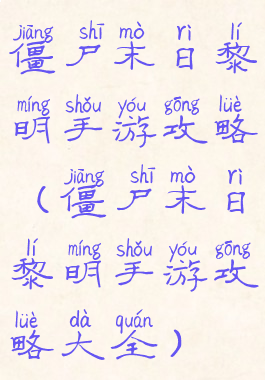 jiāng shī mò rì lí
僵尸末日黎
míng shǒu yóu gōng lüè
明手游攻略
jiāng shī mò rì
(僵尸末日
lí míng shǒu yóu gōng
黎明手游攻
lüè dà quán
略大全)